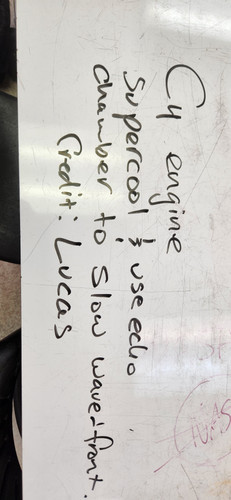 C4 engine
Supercool & use echo
chamber to slow wave-front.
Credit: Lucas